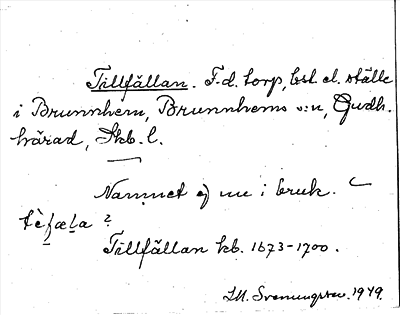 Tillfällan. F.d. torp, bst el. ställe
i Brunnhem, Brunnhems s:n, Gudh.
härad, Skb. l.
Namnet ej nu i bruk.
tèfæla ?
Tillfällan kb. 1673-1700.
1949.